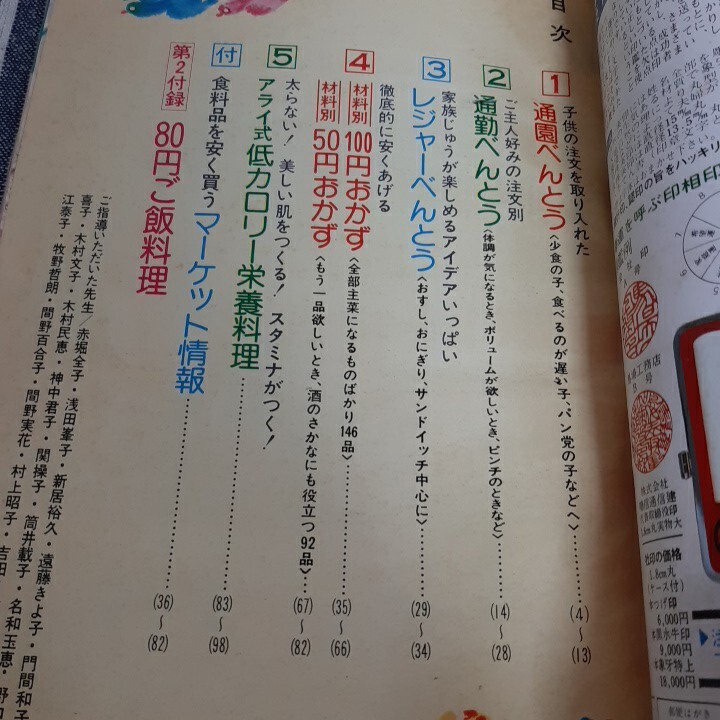 目次
1
子供の注文を取り入れた
通園べんとう〈少食の子、食べるのが遅い子、パン党の子などへ〉
(4)〜(13)
2
ご主人好みの注文別
通勤べんとう〈体調が気になるとき、ボリュームが欲しいとき、ピンチのときなど〉
(14)〜(28)
3
家族じゅうが楽しめるアイデアいっぱい
レジャーべんとう〈おすし、おにぎり、サンドイッチ中心に〉
(29)〜(34)
徹底的に安くあげる
4
材料別 100円おかず〈全部主菜になるものばかり146品〉
(35)〜(66)
材料別 50円おかず〈もう一品欲しいとき、酒のさかなにも役立つ92品〉
(67)〜(82)
5
太らない! 美しい肌をつくる! スタミナがつく!
アライ式低カロリー栄養料理
付
食料品を安く買うマーケット情報
(83)〜(98)
第2付録
80円ご飯料理
(36)〜(82)
ご指導いただいた先生/赤堀全子・浅田峯子・新居裕久・遠藤きよ子・門間和子
喜子・木村文子・木村民恵・神中君子・関操子・筒井載子・名和玉恵・野口
江泰子・牧野哲朗・間野百合子・間野実花・村上昭子・吉田
印の旨をハッキリ
を呼ぶ印相印
株式会社
代表取締役印
1.8cm丸実物大
社印の価格
1.8cm丸
(ケース付)
本つげ印
6,000円
9,000円
本象牙特上
18,000円
郵便はがき